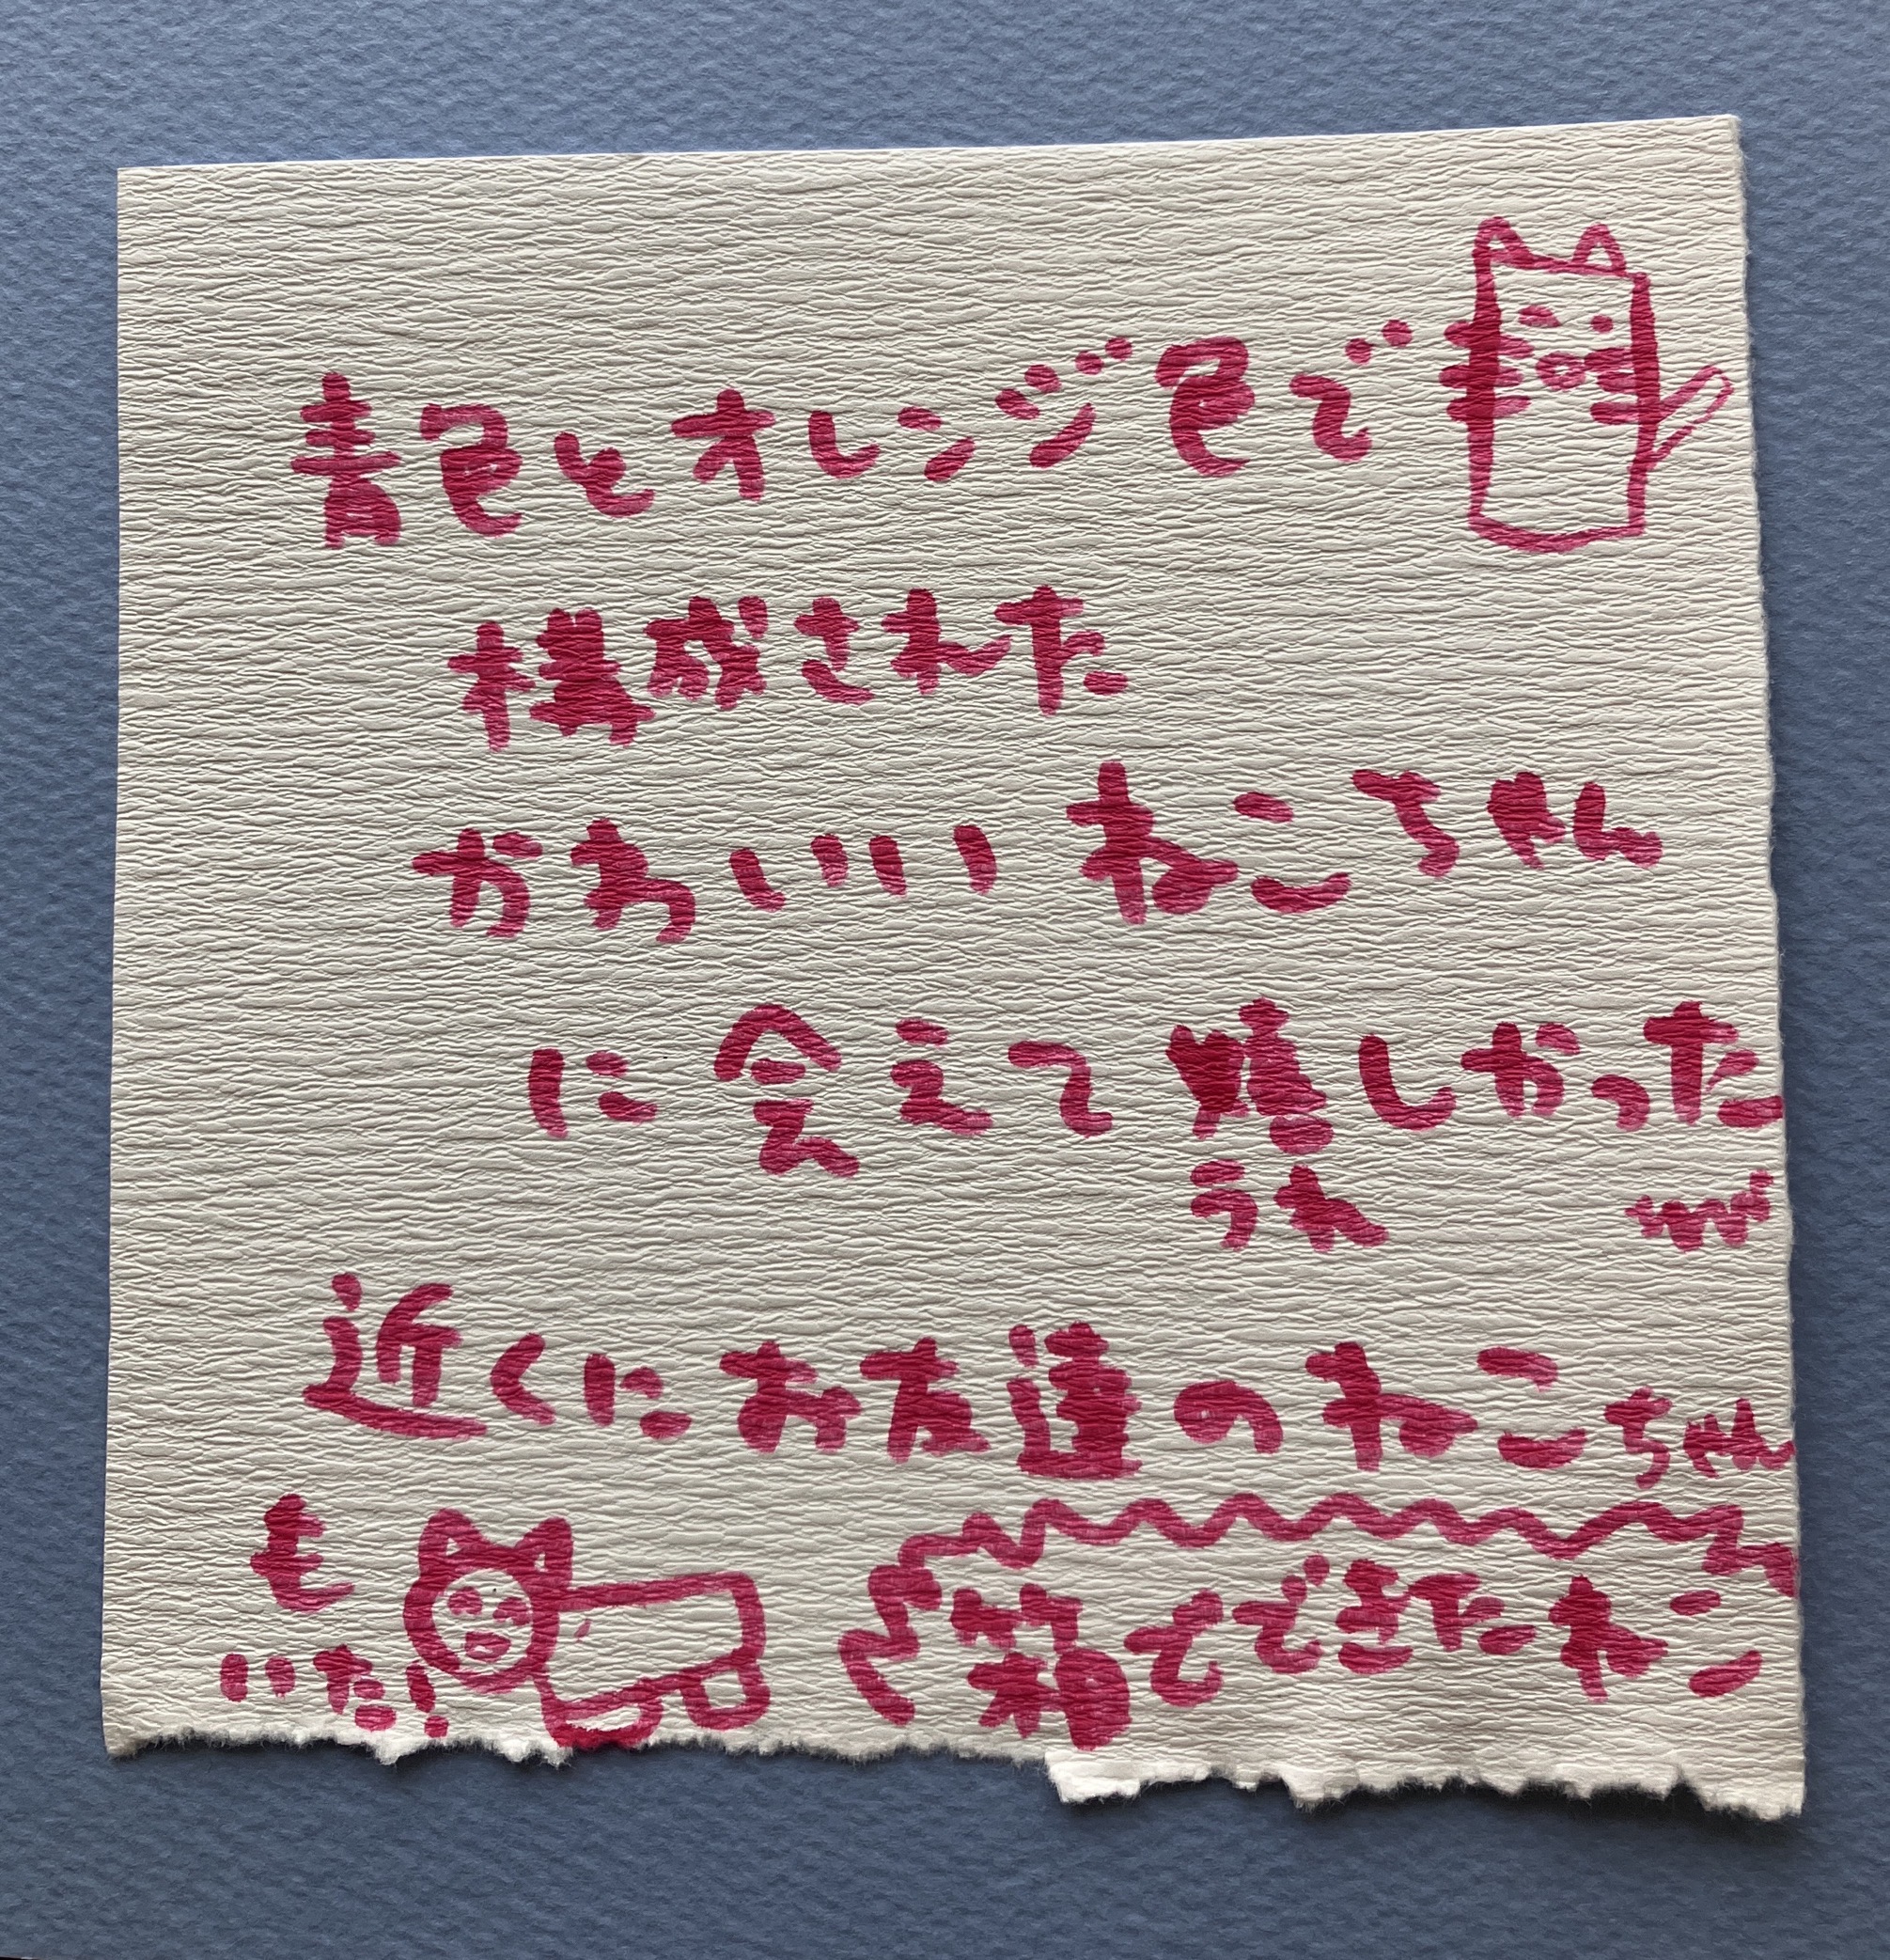 青色とオレンジ色で
構成された
かわいいいねこちゃん
に会えて嬉しかった
うれ
近くにお友達のねこちゃん
も
いた!
箱でできたねこ